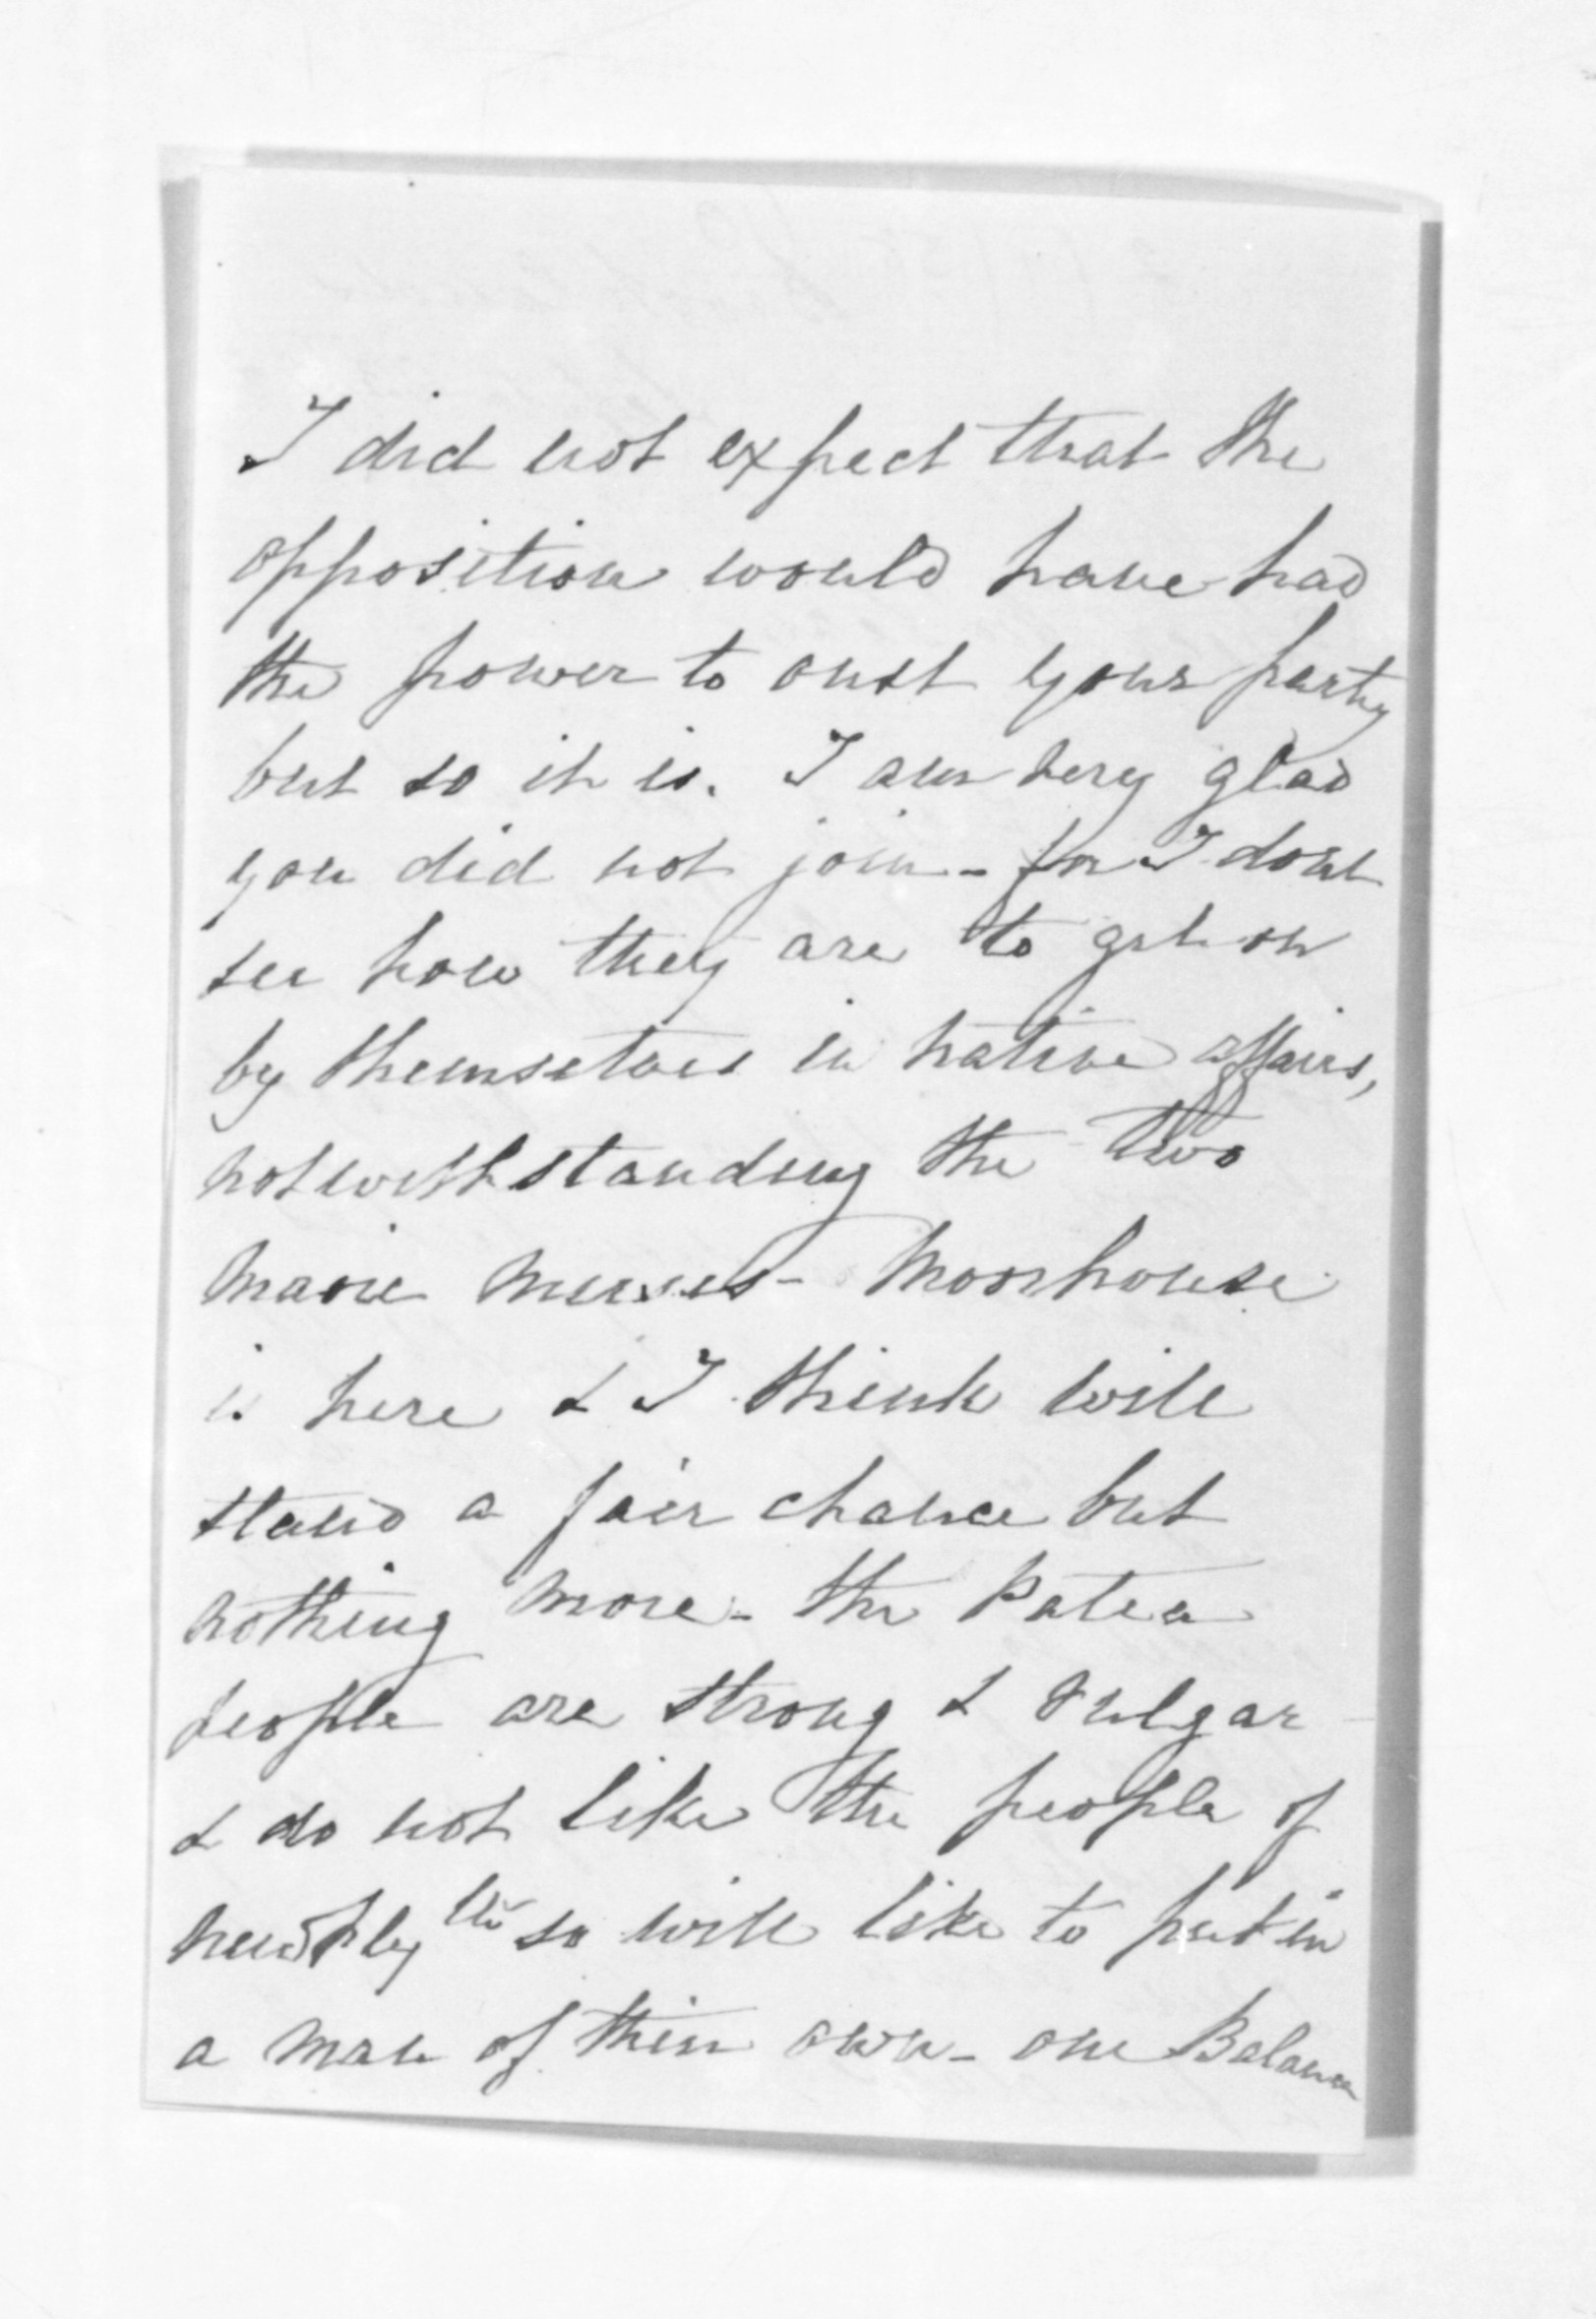 I did not expect that the
opposition would have had
the power to oust your party
but so it is. I am very glad
you did not join - for I dont
see how they are to get on
by themselves in native affairs,
notwithstanding the two
Maori nurses - Moorhouse
is here & I think will
stand a fair chance but
nothing more - the Patea
people are strong & vulgar -
& do not like the people of
so will like to put in
a man of their own - one Balance